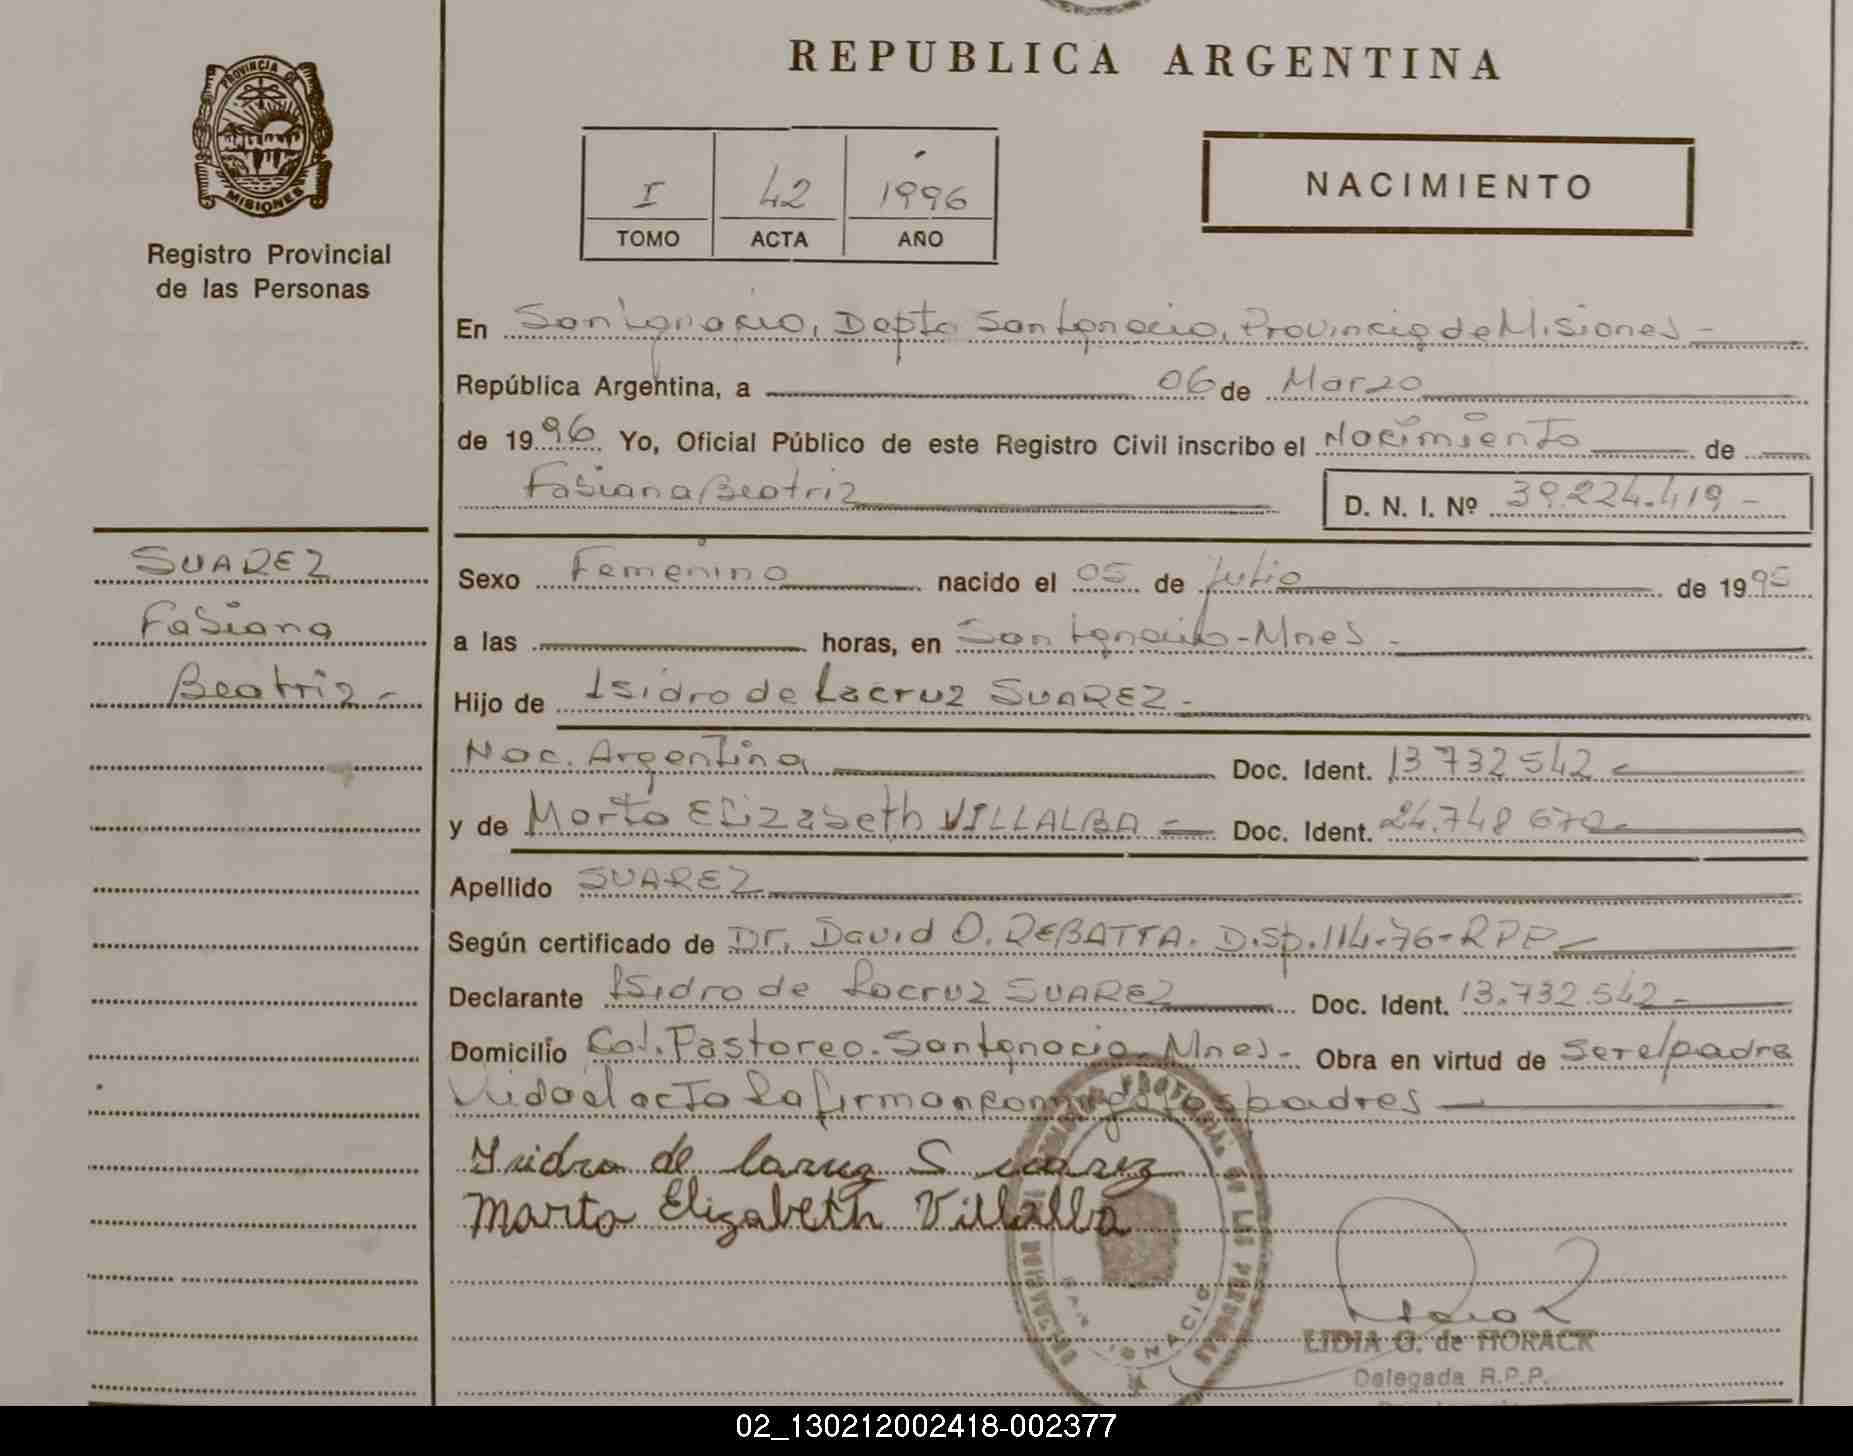 REPUBLICA ARGENTINA
PROVINCIA DE
MISIONES
Registro Provincial
de las Personas
I 42 1996
TOMO ACTA AÑO
NACIMIENTO
En San Ignacio, Depto San Ignacio, Provincia de Misiones -
República Argentina, a 06 de Marzo
de 1996 Yo, Oficial Público de este Registro Civil inscribo el Nacimiento de
Fabiana Beatriz D. N. I. Nº 39.224.419 -
SUAREZ
Fabiana
Beatriz -
Sexo Femenino nacido el 05 de Julio de 1995
a las horas, en San Ignacio - Mnes -
Hijo de Isidro de Lacruz SUAREZ -
Nac. Argentina Doc. Ident. 13 732 542
y de Marta Elizabeth VILLALBA - Doc. Ident. 24.748 672
Apellido SUAREZ
Según certificado de Dr. David O. REBATTA. Disp. 114-76-RPP
Declarante Isidro de Lacruz SUAREZ Doc. Ident. 13.732.542 -
Domicilio Col. Pastoreo. San Ignacio - Mnes - Obra en virtud de ser el padre
Leida el acta la firman conmigo los padres
Isidro de lacruz Suarez
Marta Elizabeth Villalba
SAN IGNACIO
LIDIA G. de HORACK
Delegada R.P.P.
02_130212002418-002377